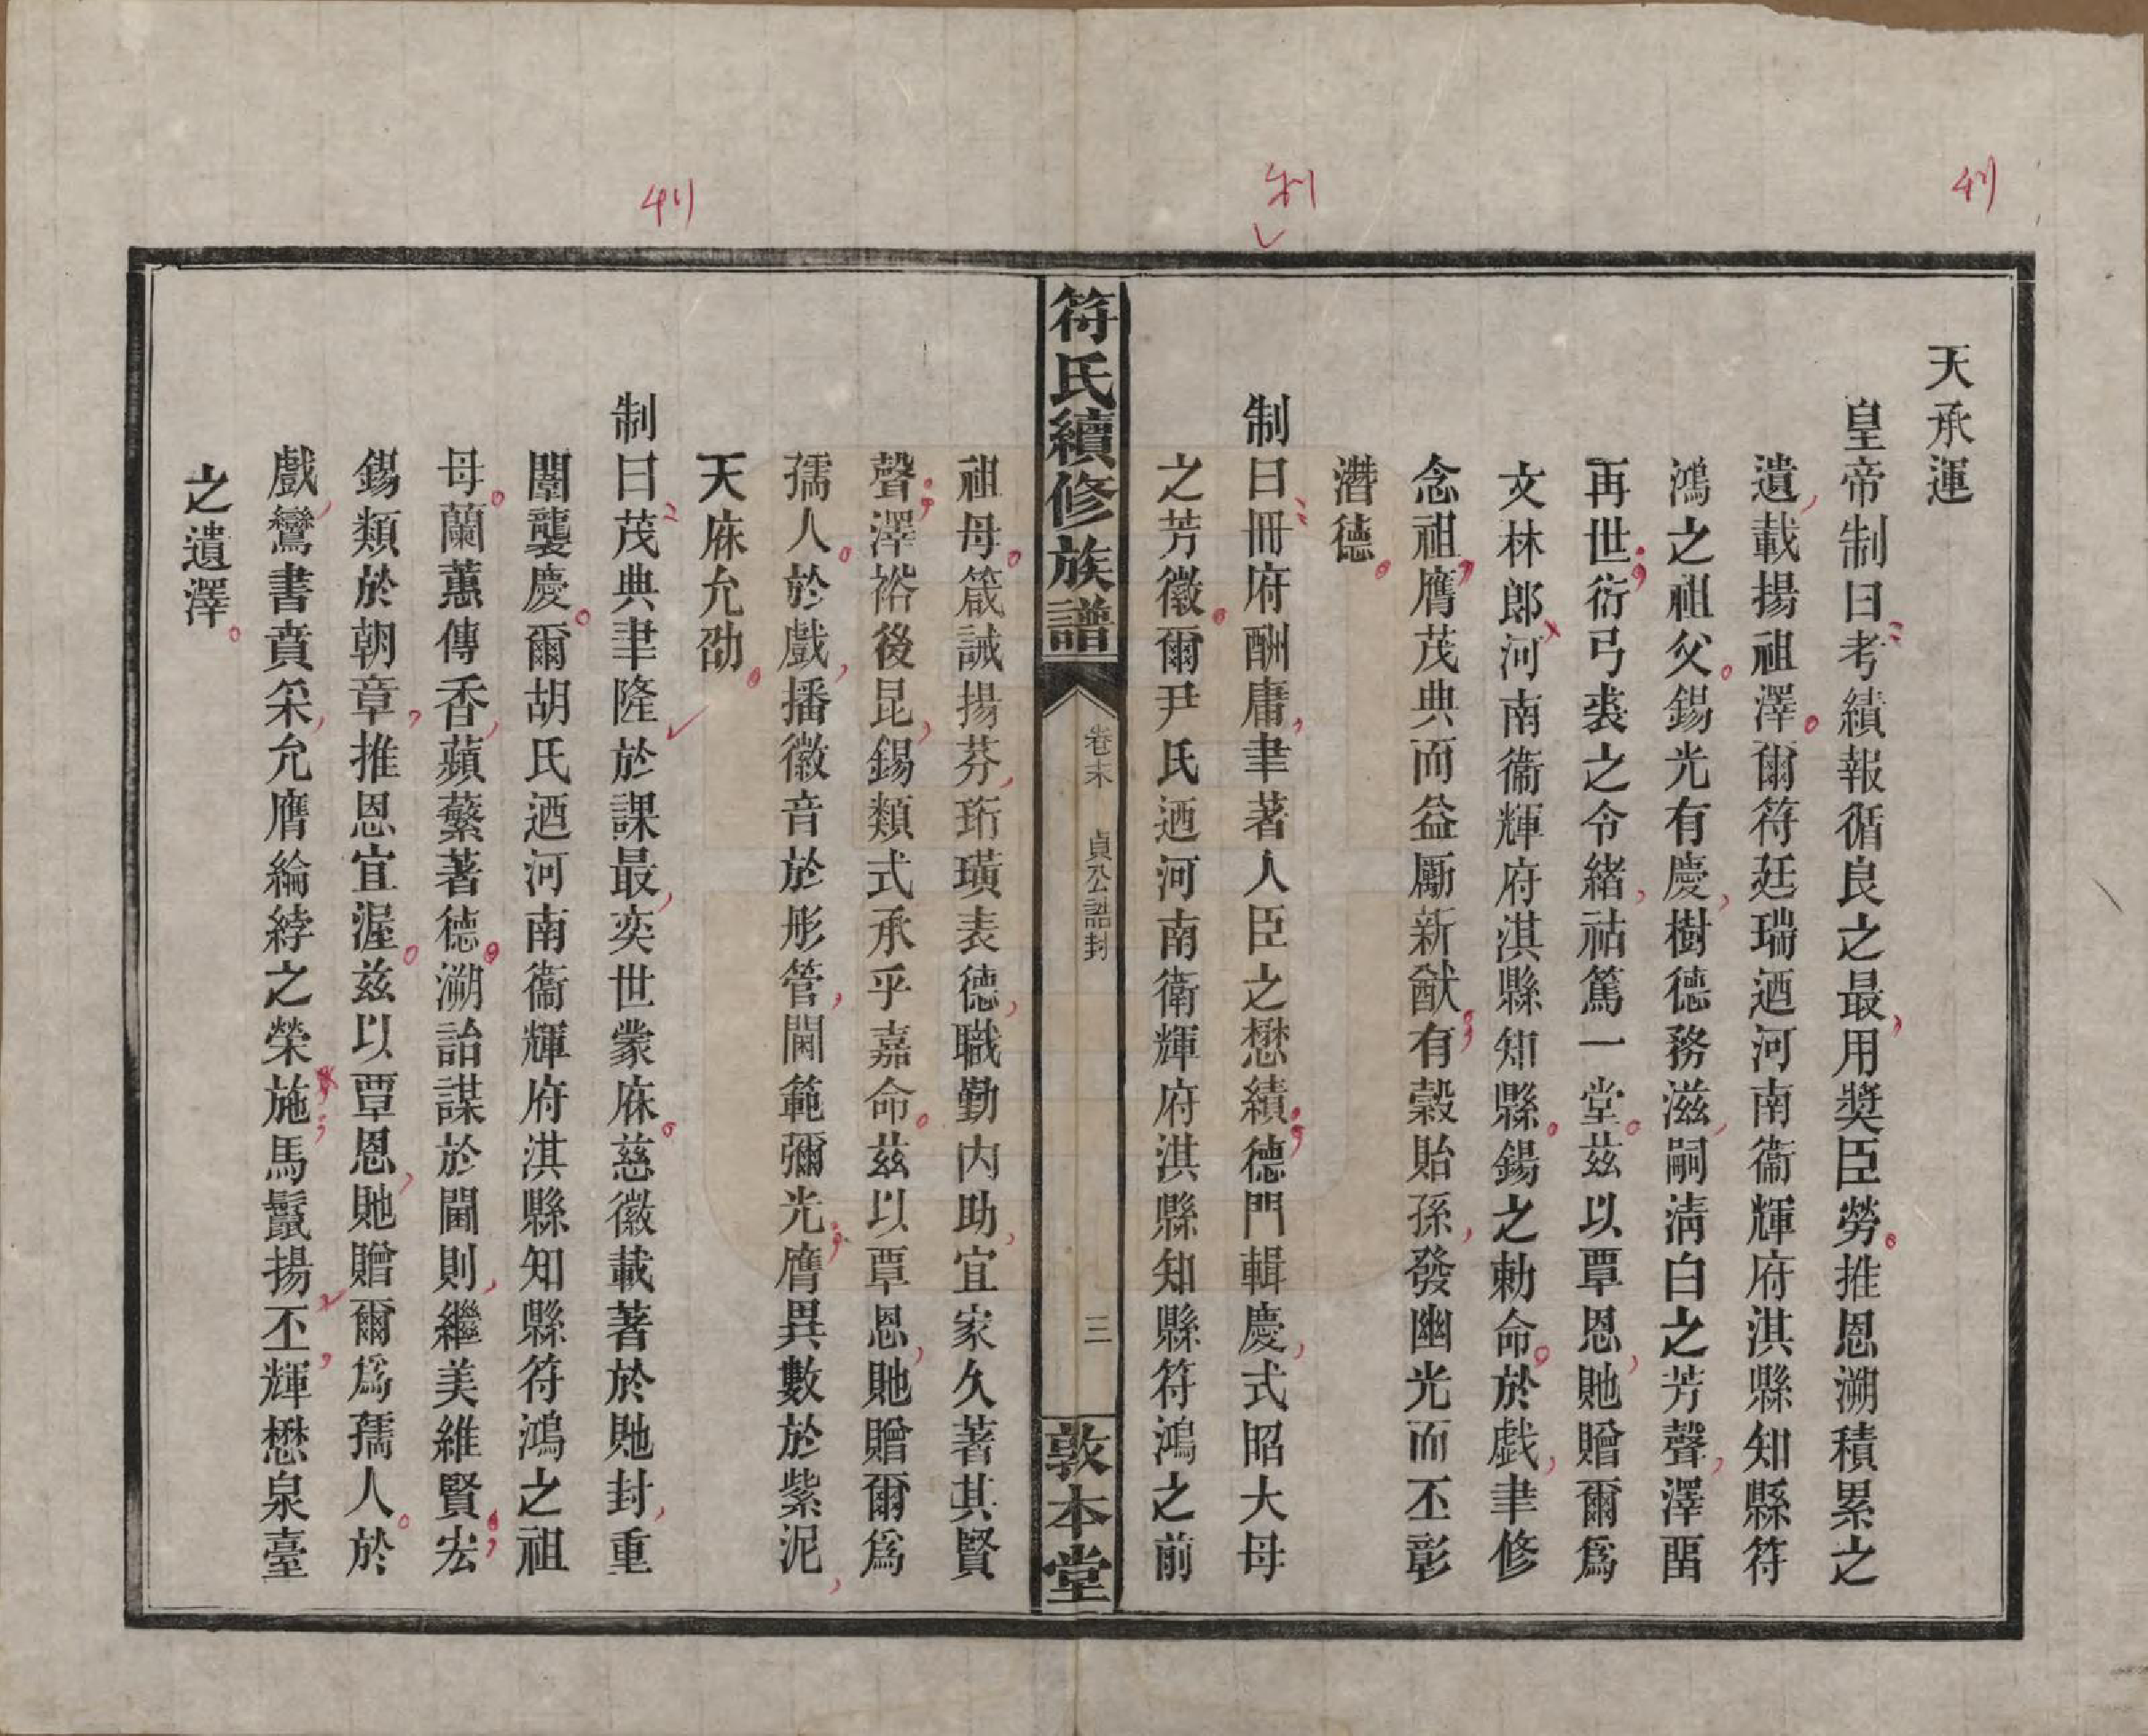 天承運
皇帝制曰考績報循良之最用獎臣勞推恩溯積累之
遺載揚祖澤爾符廷瑞迺河南衞輝府淇縣知縣符
鴻之祖父錫光有慶樹德務滋嗣淸白之芳聲澤畱
再世衍弓裘之令緖祜篤一堂茲以覃恩貤贈爾爲
文林郎河南衞輝府淇縣知縣錫之勅命於戯聿修
念祖膺茂典而益勵新猷有穀貽孫發幽光而丕彰
潛德
制曰冊府酬庸聿著人臣之懋績德門輯慶式昭大母
之芳徽爾尹氏迺河南衛輝府淇縣知縣符鴻之前
符氏續修族譜
卷末
貞公誥封
三
敦本堂
祖母箴誡揚芬珩璜表德職勤內助宜家久著其賢
聲澤裕後昆錫類式承乎嘉命茲以覃恩貤贈爾爲
孺人於戲播徽音於彤管閫範彌光膺異數於紫泥
天庥允劭
制曰茂典聿隆於課最奕世蒙庥慈徽載著於貤封重
闈襲慶爾胡氏迺河南衞輝府淇縣知縣符鴻之祖
母蘭蕙傳香蘋蘩著德溯詒謀於閫則繼美維賢宏
錫類於朝章推恩宜渥茲以覃恩貤贈爾爲孺人於
戲鸞書賁采允膺綸綍之榮施馬鬛揚丕輝懋泉臺
之遺澤